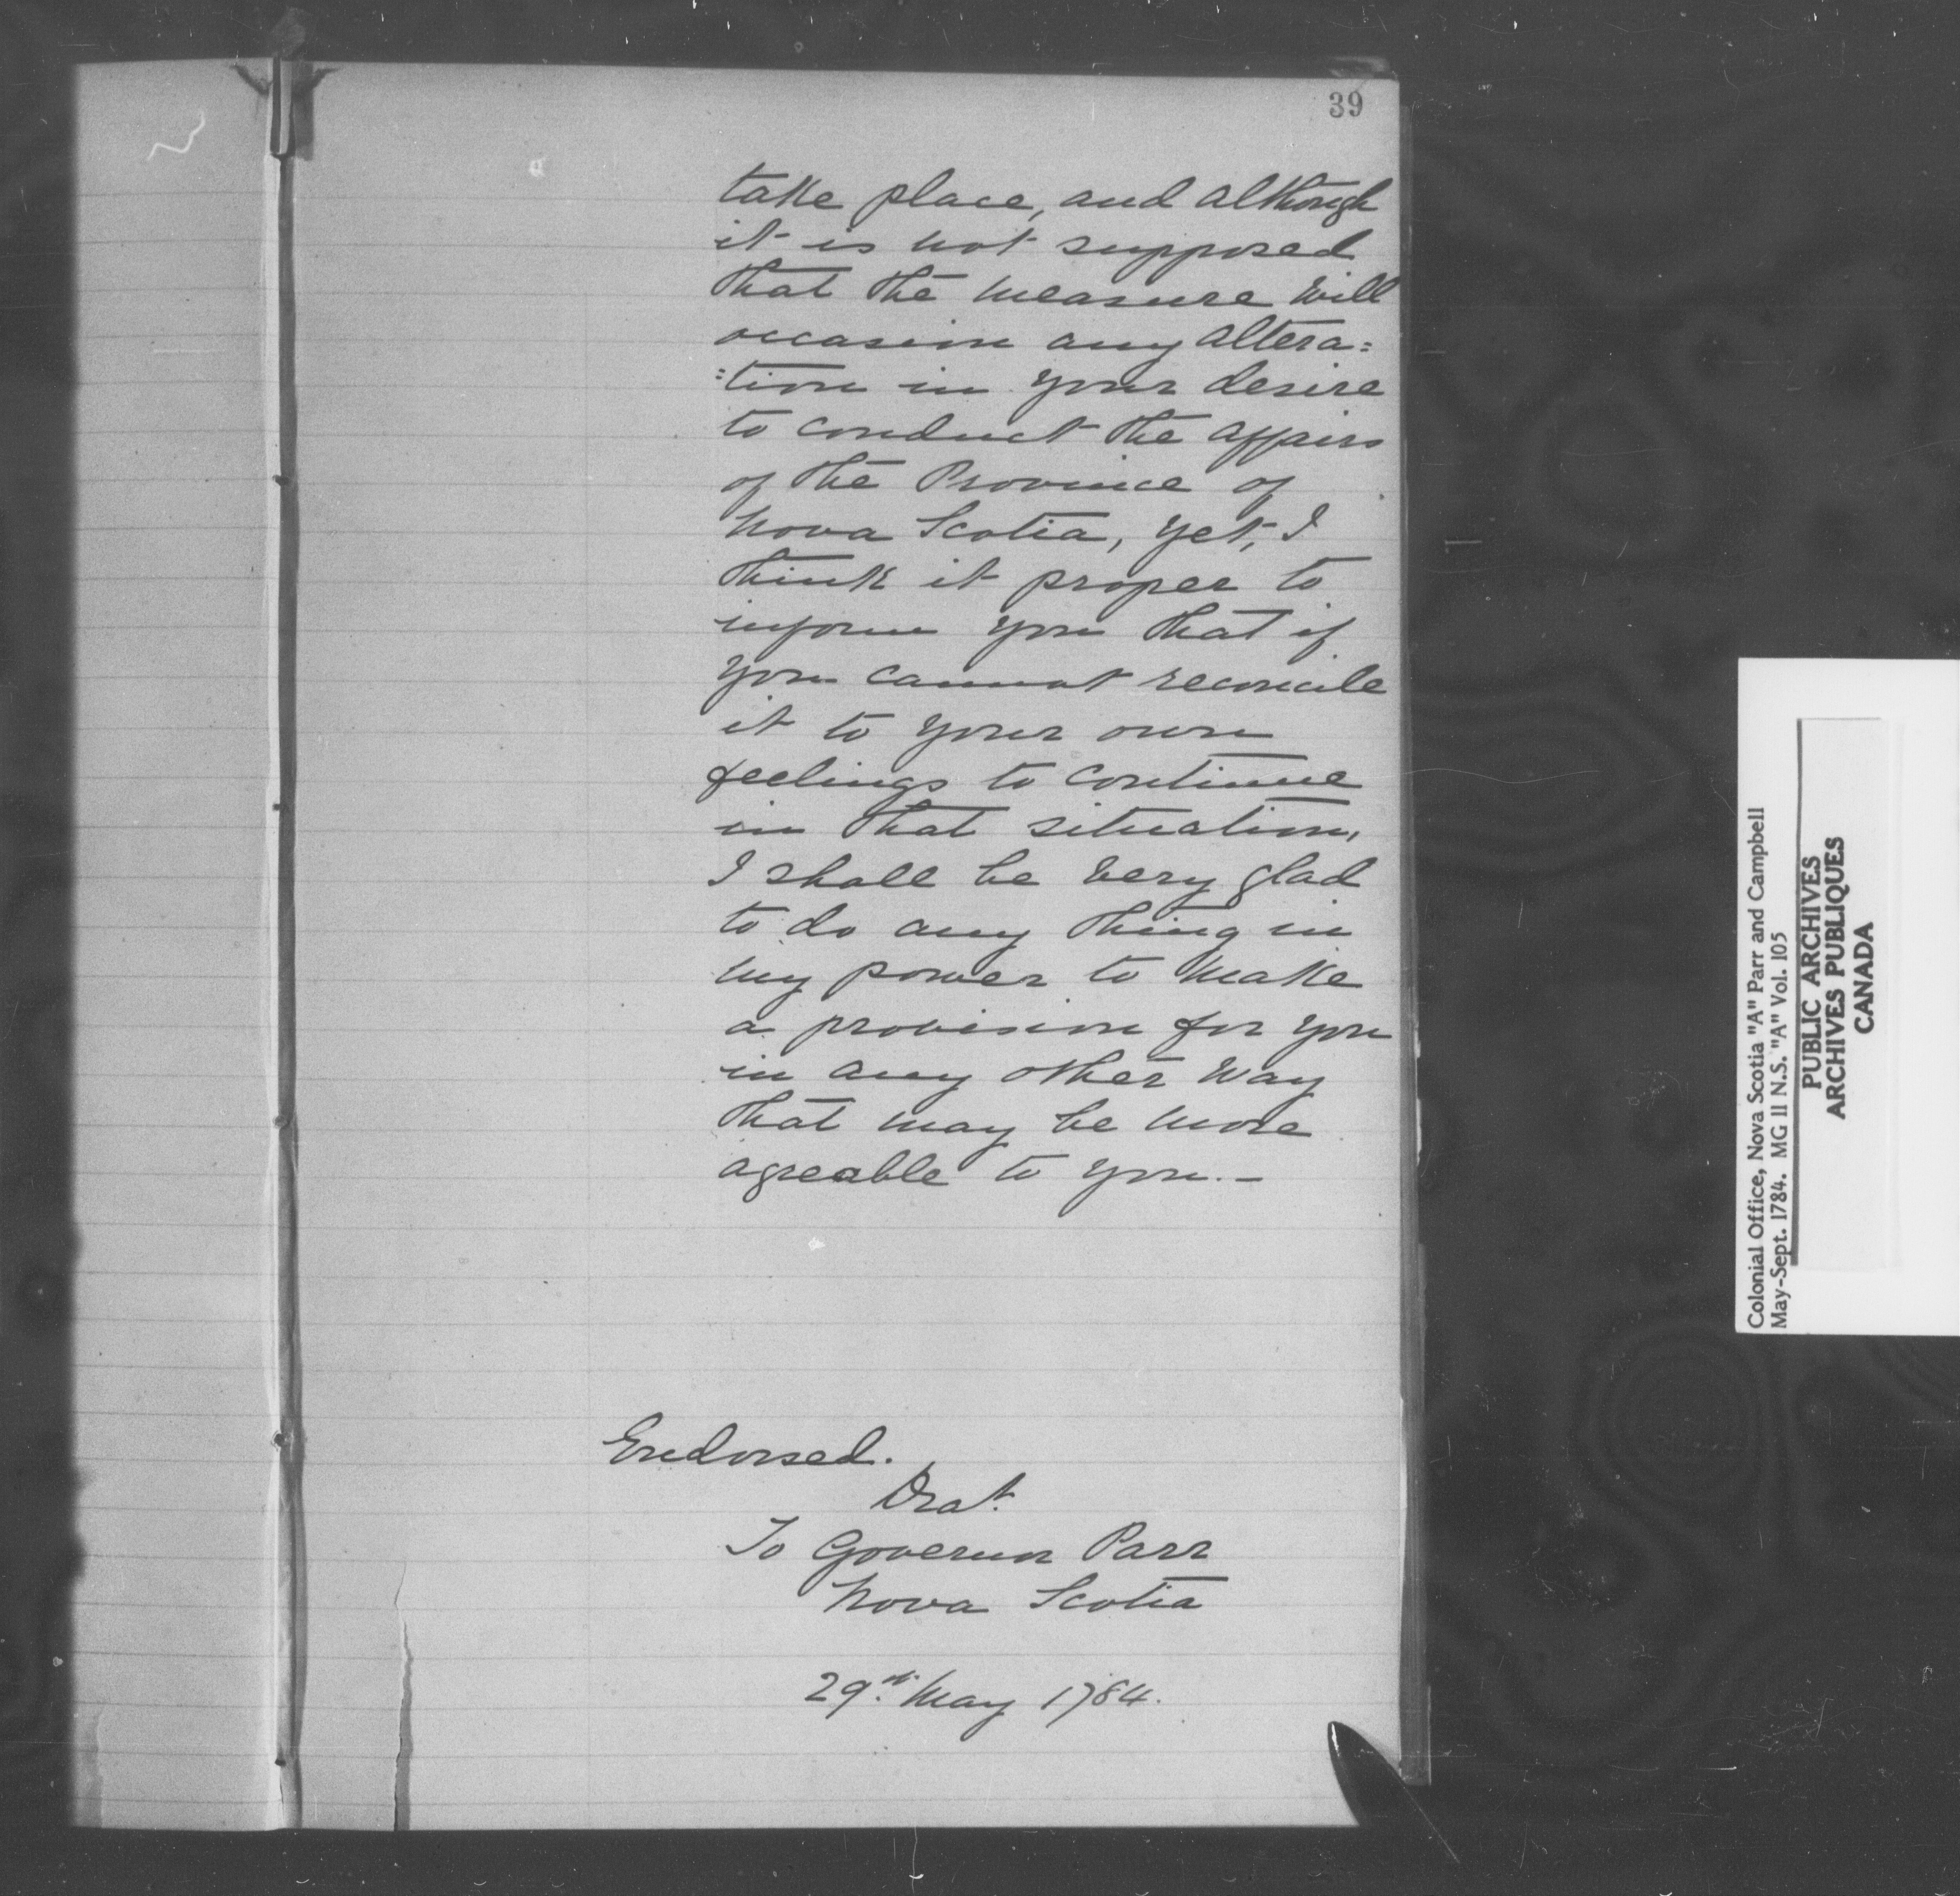 39
take place, and although
it is not supposed
that the measure will
occasion any altera=
=tion in your desire
to conduct the affairs
of the Province of
Nova Scotia, yet, I
think it proper to
inform you that if
you cannot reconcile
it to your own
feelings to continue
in that situation,
I shall be very glad
to do any thing in
my power to make
a provision for you
in any other way
that may be more
agreable to you.—
Endorsed.
Drat.
To Governor Parr
Nova Scotia
29th May 1784.
Colonial Office, Nova Scotia "A" Parr and Campbell
May-Sept. 1784. MG 11 N.S. "A" Vol. 105
PUBLIC ARCHIVES
ARCHIVES PUBLIQUES
CANADA